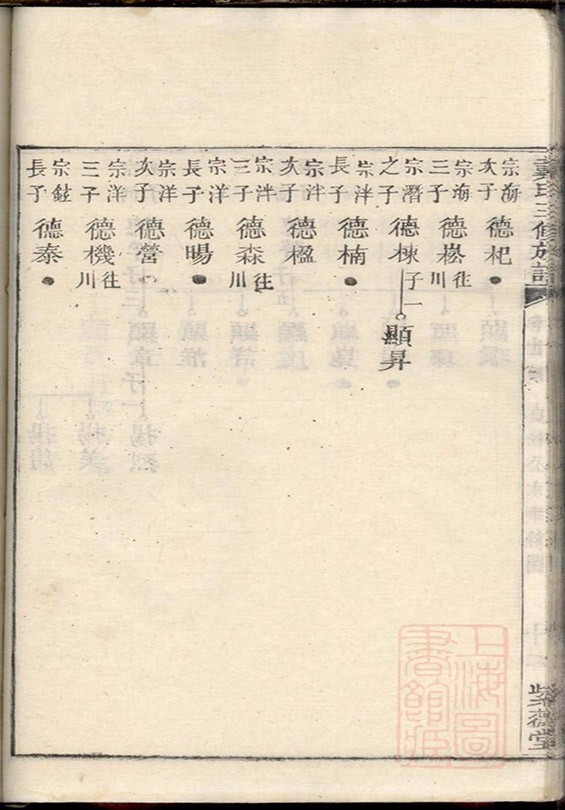 宗海次子 德杞
宗海三子 德崧 往川
宗潛之子 德棟 子一 顯昇
宗泮長子 德楠
宗泮次子 德楹
宗泮三子 德森 往川
宗洋長子 德暘
宗洋次子 德營
宗洋三子 德機 往川
宗鉉長子 德泰
氏三修族譜
紫薇堂
上海圖書館藏